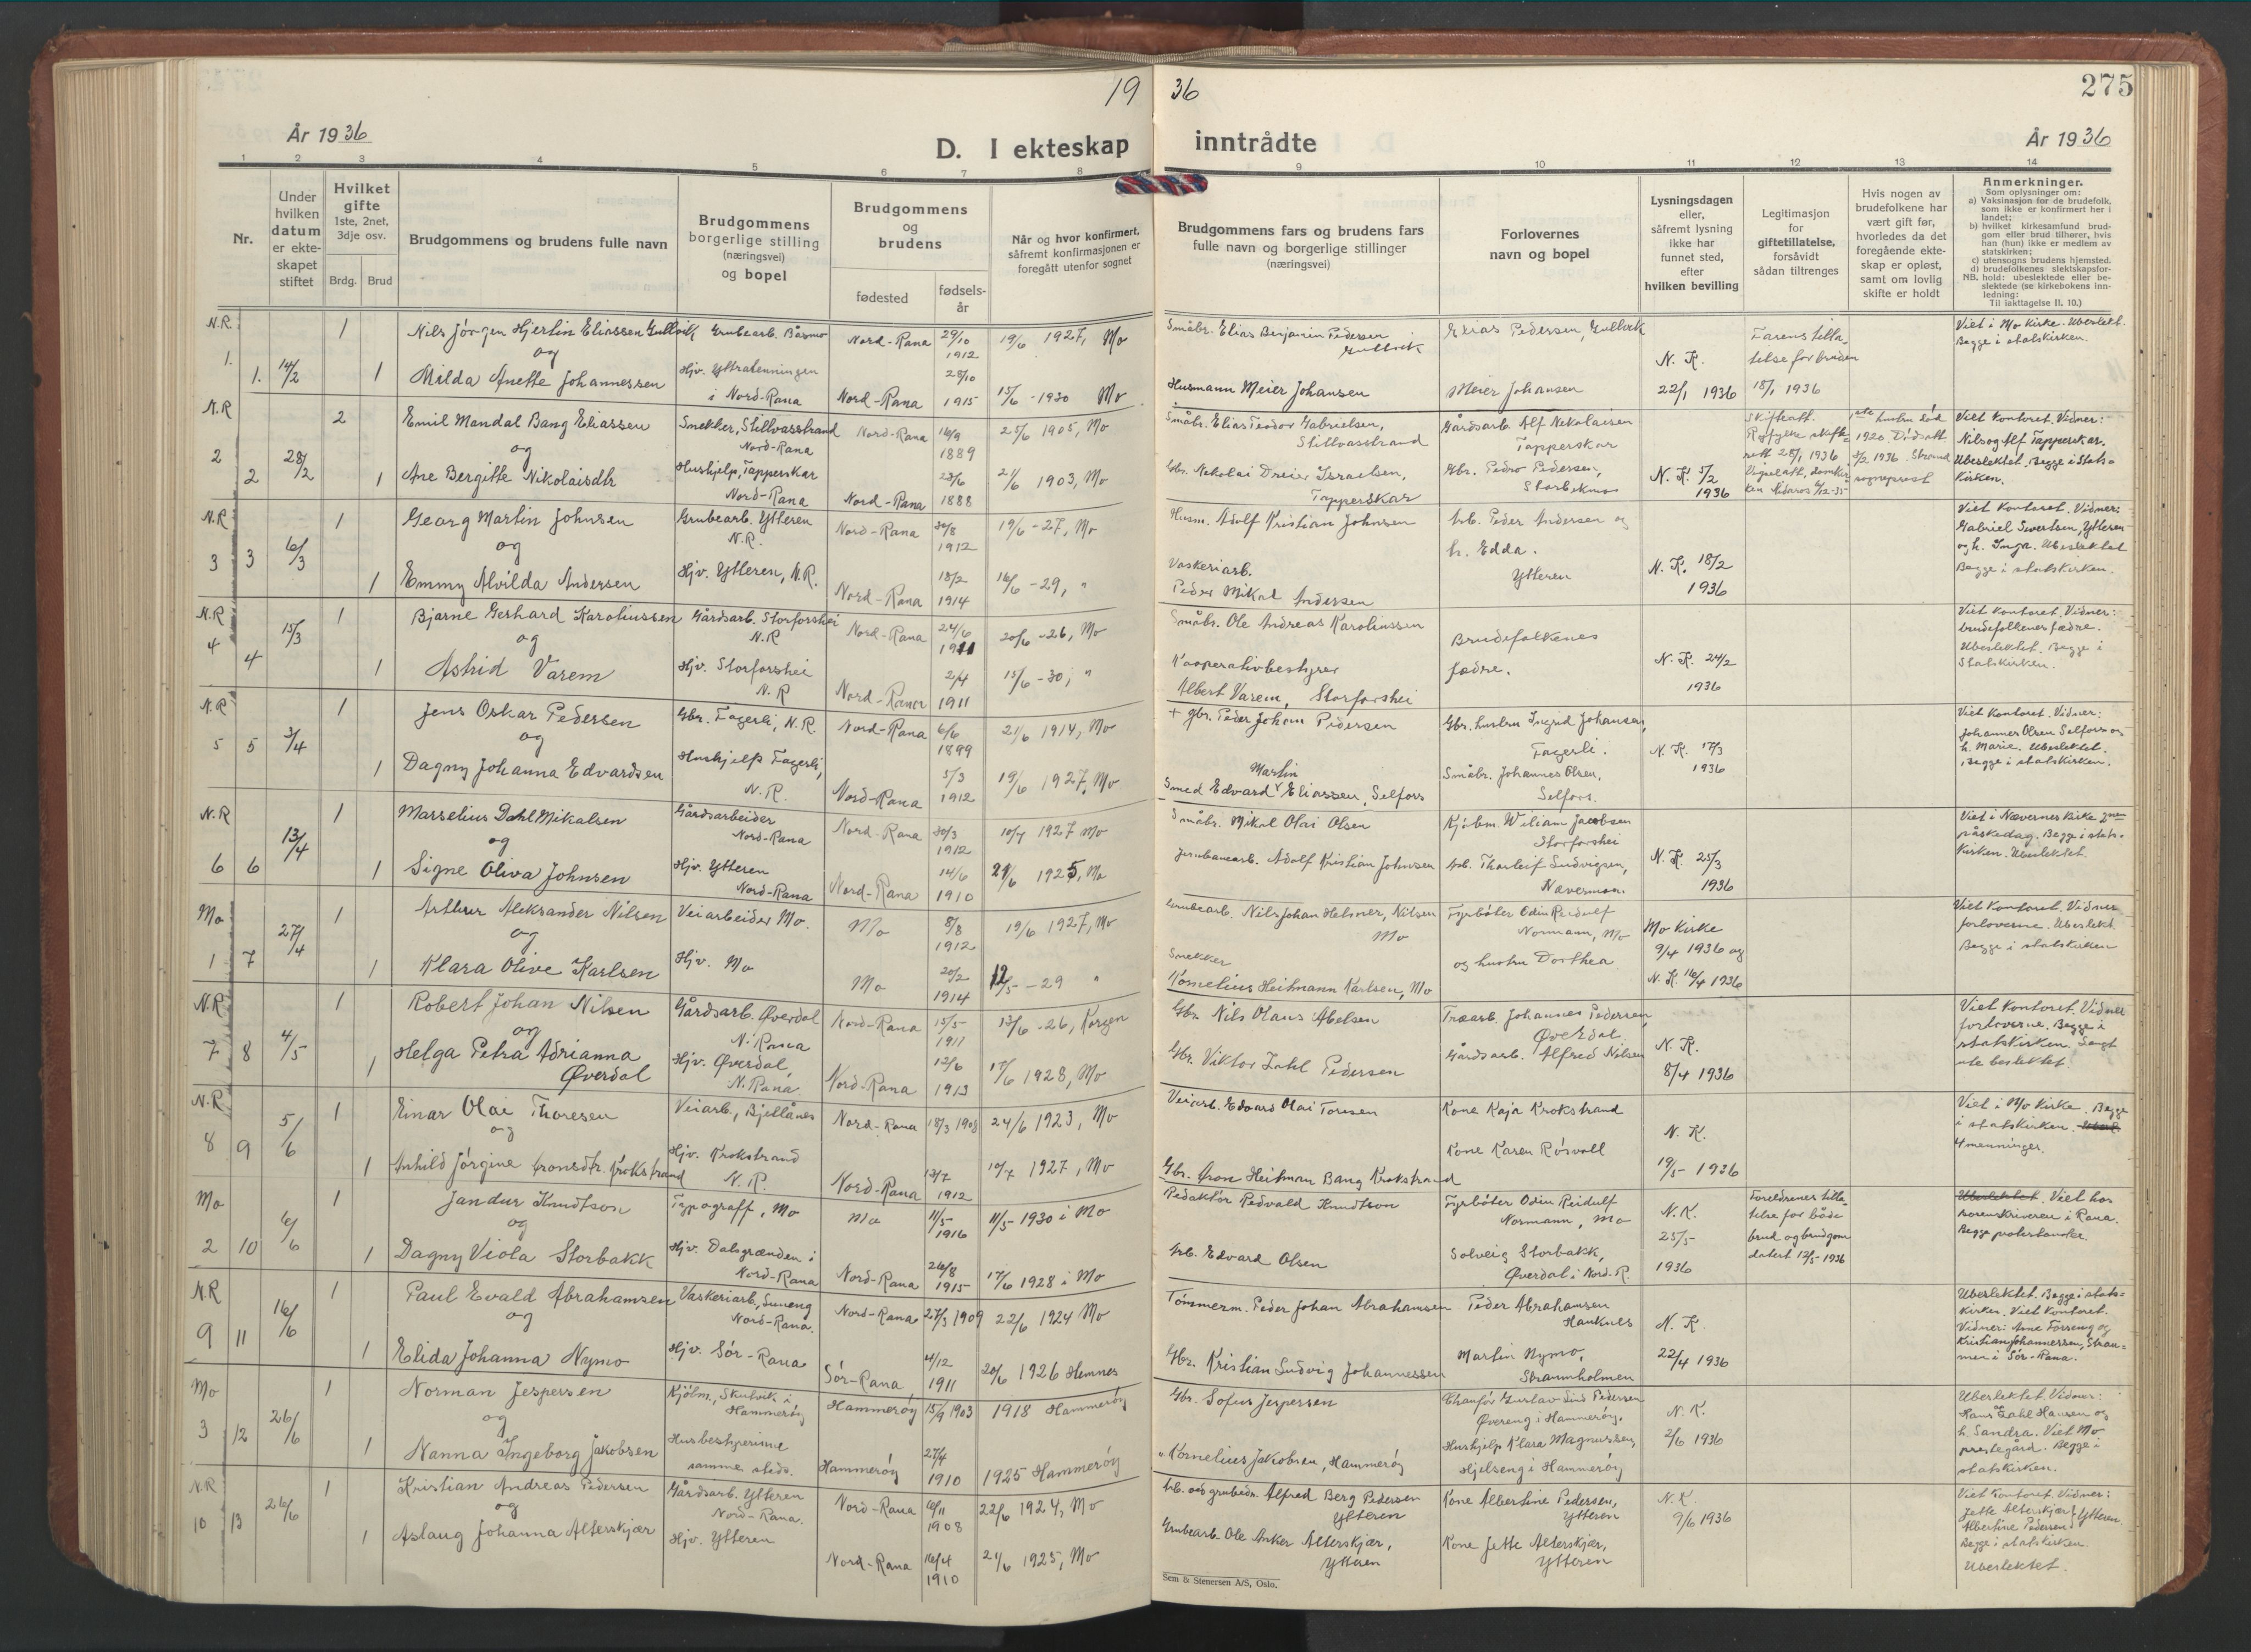 19 36
275
År 1936
D. I ekteskap inntrådte
År 1936
1 2 3 4 5 6 7 8 9 10 11 12 13 14
Nr.
Under hvilken datum er ekteskapet stiftet
Hvilket gifte 1ste, 2net, 3dje osv.
Brdg. Brud
Brudgommens og brudens fulle navn
Brudgommens borgerlige stilling (næringsvei) og bopel
Brudgommens og brudens
fødested
fødselsår
Når og hvor konfirmert, såfremt konfirmasjonen er foregått utenfor sognet
Brudgommens fars og brudens fars fulle navn og borgerlige stillinger (næringsvei)
Forlovernes navn og bopel
Lysningsdagen eller, såfremt lysning ikke har funnet sted, efter hvilken bevilling
Legitimasjon for giftetillatelse, forsåvidt sådan tiltrenges
Hvis nogen av brudefolkene har vært gift før, hvorledes da det foregående ekteskap er opløst, samt om lovlig skifte er holdt
Anmerkninger.
Som oplysninger om:
a) Vaksinasjon for de brudefolk, som ikke er konfirmert her i landet;
b) hvilket kirkesamfund brudgom eller brud tilhører, hvis han (hun) ikke er medlem av statskirken;
c) utensogns brudens hjemsted.
d) brudefolkenes slektskapsforhold: ubeslektede eller beslektede (se kirkebokens innledning:
NB. Til iakttagelse II, 10.)
N.R. 1. 1. 14/2 1 Nils Jørgen Hjertin Eliassen Gullvik Grubearb. Båsmo Nord-Rana 29/10 1912 19/6 1927, Mo
Småbr. Elias Benjamin Pedersen Gullvik Elias Pedersen, Gullvik N. K. Farens tillatelse for bruden Viet i Mo Kirke. Ubeslekt. Begge i statskirken.
og
1 Milda Anette Johannessen Hjv. Ytteren i Nord-Rana Nord-Rana 28/10 1915 15/6 - 1930 Mo
Husmann Meier Johansen Meier Johansen 22/1 1936 18/1 1936
N.R 2 2 28/2 2 Emil Mandal Bang Eliassen Snekker, Stillvasstrand Nord-Rana Nord-Rana 16/9 1889 25/6 1905, Mo
Småbr. Elias Teodor Gabrielsen, Stillvasstrand Gårdsarb. Alf Nikolaisen Tapperskar Viet Kontoret. Vidner: Nils og Alf Tapperskar. Ubeslektet. Begge i Statskirken.
og
1 Ane Bergitte Nikolaisdtr Hushjelp, Tapperskar Nord-Rana Nord-Rana 23/6 1888 21/6 1903, Mo
Gbr. Nikolai Dreier Israelsen, Tapperskar Gbr. Pedro Pedersen, N. K. 5/2 1936
N.R 3 3 6/3 1 Georg Martin Johnsen Grubearb. Ytteren N.R. Nord-Rana 30/8 1912 19/6 - 27, Mo
Husm. Adolf Kristian Johnsen Arb. Peder Andersen og h. Edda. Ytteren Viet Kontoret. Vidner: Gabriel Sivertsen, Ytteren og h. Inga. Ubeslektet Begge i statskirken.
og
1 Emmy Alvilda Andersen Hjv. Ytteren, N.R. Nord-Rana 18/2 1914 16/6 - 29, "
Vaskeriarb. Peder Mikal Andersen N. K. 18/2 1936
N.R 4 4 15/3 1 Bjarne Gerhard Karoliussen Gårdsarb. Storforshei N.R Nord-Rana 24/6 1911 20/6 - 26, Mo
Småbr. Ole Andreas Karoliussen Brudefolkenes fædre. Viet Kontoret. Vidner: brudefolkenes fædre. Ubeslektet. Begge i Statskirken.
og
1 Astrid Varem Hjv. Storforshei N.R Nord-Rana 2/4 1911 15/6 - 30, "
Kooperativbestyrer Albert Varem, Storforshei N. K. 24/2 1936
N.R 5 5 3/4 1 Jens Oskar Pedersen Gbr. Fagerli, N.R. Nord-Rana 6/6 1899 21/6 1914, Mo
+ gbr. Peder Johan Pedersen Gbr. hustru Ingrid Johansen, Fagerli. N. K. 17/3 1936 Viet Kontoret. Vidner: Johannes Olsen Selfors og h. Marie. Ubeslektet. Begge i statskirken.
og
1 Dagny Johanna Edvardsen Hushjelp Fagerli, N.R. Nord-Rana 5/3 1912 19/6 1927, Mo
Smed Edvard Martin Eliassen, Selfors Småbr. Johannes Olsen, Selfors.
N.R 6 6 13/4 1 Marselius Dahl Mikalsen Gårdsarbeider Nord-Rana Nord-Rana 30/3 1912 10/7 1927 Mo
Småbr. Mikal Olai Olsen Kjøbm. Wiliam Jacobsen Storforshei Viet i Nævernes Kirke 2nen påskedag. Begge i statskirken. Ubeslektet.
og
1 Signe Oliva Johnsen Hjv. Ytteren Nord-Rana Nord-Rana 14/6 1910 21/6 1925, Mo
Jernbanearb. Adolf Kristian Johnsen Arb. Thorleif Ludvigsen, Nævermoen N. K. 25/3 1936
Mo 1 7 27/4 1 Arthur Aleksander Nilsen Veiarbeider Mo. Mo 8/8 1912 19/6 1927, Mo
Grubearb. Nils Johan Helsner, Nilsen Mo Fyrbøter Odin Reidulf Normann, Mo Mo Kirke 9/4 1936 og Viet Kontoret. Vidner forloverne. Ubeslekt. Begge i statskirken
og
1 Klara Olive Karlsen Hjv. Mo Mo 20/2 1914 12/5 - 29 "
Snekker Kornelius Heitmann Karlsen, Mo og hustru Dorthea N. K. 16/4 1936
N.R 7 8 4/5 1 Robert Johan Nilsen Gårdsarb. Øverdal N. Rana Nord-Rana 15/5 1911 13/6 - 26, Korgen
Gbr. Nils Olaus Abelsen Træarb. Johannes Pedersen, Øverdal N. K. Viet Kontoret. Vidner forloverne. Begge i statskirken. Langt ute beslektet.
og
1 Helga Petra Adrianna Øverdal Hjv. Øverdal, N. Rana Nord-Rana 12/6 1913 17/6 1928, Mo
Gbr. Viktor Dahl Pedersen Gårdsarb. Alfred Nilsen 8/4 1936
N.R 8 9 5/6 1 Einar Olai Thoresen Veiarb., Bjellånes Nord-Rana 18/3 1908 24/6 1923, Mo
Veiarb. Edvard Olai Toresen Kone Kaja Krokstrand N. K. Viet i Mo Kirke. Begge i statskirken. 4 menninger.
og
1 Anhild Jørgine Aronsdtr. Krokstrand Hjv. Krokstrand N.R. Nord-Rana 13/7 1912 10/7 1927, Mo
Gbr. Aron Heitman Bang Krokstrand Kone Karen Røsvoll 19/5 - 1936
Mo 2 10 6/6 1 Jandur Knudtson Typograff, Mo Mo 11/5 1916 11/5 1930 i Mo
Redaktør Redvald Knudtson Fyrbøter Odin Reidulf Normann, Mo N.K. Foreldrenes tillatelse for både brud og brudgom datert 12/5-1936 Ubeslektet. Viet hos sorenskriveren i Rana. Begge protestander.
og
1 Dagny Viola Storbakk Hjv. Dalsgrænden i Nord-Rana Nord-Rana 26/8 1915 17/6 1928 i Mo
Arb. Edvard Olsen Solveig Storbakk, Øverdal i Nord-R. 25/5 1936
N.R 9 11 16/6 1 Paul Evald Abrahamsen Vaskeriarb, Nord-Rana. Nord-Rana 27/3 1909 22/6 1924 Mo
Tømmerm. Peder Johan Abrahamsen Peder Abrahamsen Hauknes N. K. Ubeslektet. Begge i statskirken. Viet Kontoret. Vidner: Arne Forseng og Kristian Johannessen, Straumen i Sør-Rana.
og
1 Elida Johanna Nymo Hjv. Sør-Rana Sør-Rana 4/12 1911 20/6 1926 Hemnes
Gbr. Kristian Ludvig Johannessen Martin Nymo, Straumholmen 22/4 1936
Mo 3 12 26/6 1 Norman Jespersen Kjøbm., Skutvik i Hammerøy Hammerøy 15/9 1903 1918 Hammerøy
Gbr. Sofus Jespersen Chaufør Gustav Lind Pedersen Øvereng i Hammerøy. N. K. Ubeslektet. Vidner: Hans Dahl Hansen og h. Sandra. Viet Mo prestegård. Begge i statskirken.
og
1 Nanna Ingeborg Jakobsen Husbestyrerinne samme steds. Hammerøy 27/4 1910 1925 Hammerøy
" Kornelius Jakobsen, Hammerøy Hushjelp Klara Magnussen, Hjelseng i Hammerøy 2/6 1936
N.R 10 13 26/6 1 Kristian Andreas Pedersen Gårdsarb. Ytteren Nord-Rana. Nord-Rana 6/11 1908 22/6 1924, Mo
Arb. Alfred Berg Pedersen Ytteren Kone Albertine Pedersen, Ytteren N.K. 9/6 1936 Viet Kontoret. Vidner: Jette Alterskjær Albertine Pedersen Ytteren. Begge i statskirken. Ubeslektet.
og
1 Aslaug Johanna Alterskjær Hjv. Ytteren Nord-Rana 16/4 1910 21/6 1925, Mo
Grubearb. Ole Anker Alterskjær, Ytteren Kone Jette Alterskjær, Ytteren
Sem & Stenersen A/S, Oslo.